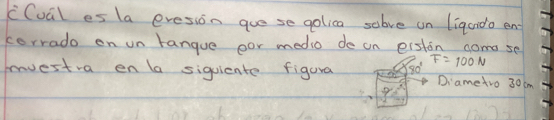 ¿Cuál es la presión que se aplica sobre un líquido en-
cerrado en un tanque por medio de un pistón como se
muestra en la siguiente figura
F = 100 N
30°
Diametro 30 cm